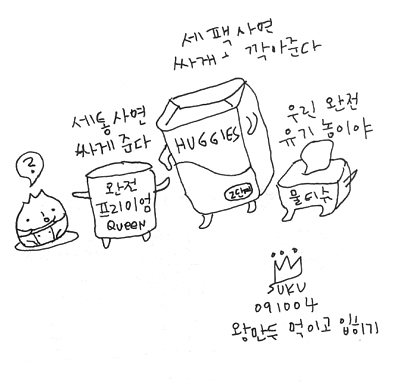 세 팩 사면
싸개도 깍아준다
세통사면
싸게 준다
우린 완전
유기농이야
?
완전
프리미엄
QUEEN
HUGGIES
2단계
물티슈
SUKU
091004
왕만두 먹이고 입히기